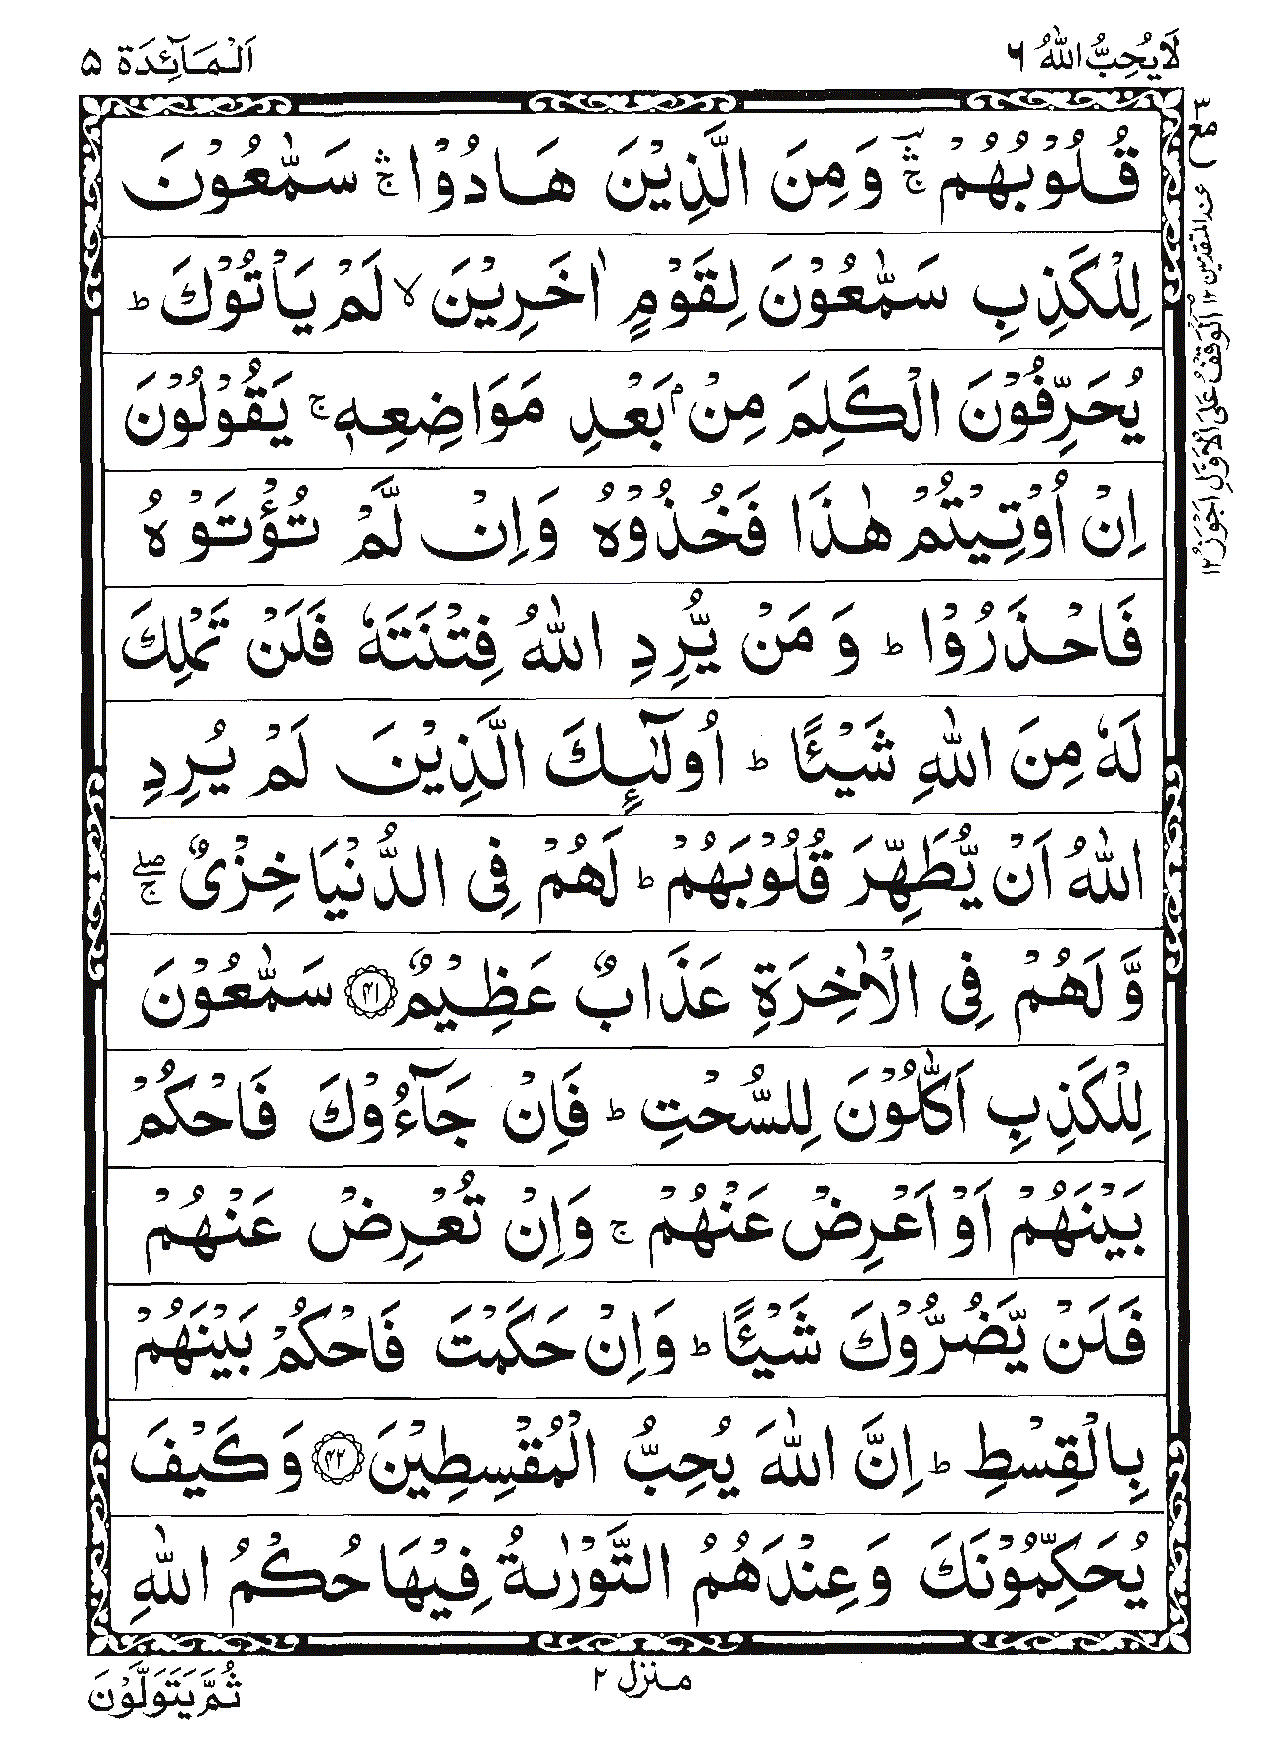 لَا يُحِبُّ اللهُ ٦
اَلْمَآئِدَة ٥
قُلُوْبُهُمْ ۛۚ وَمِنَ الَّذِيْنَ هَادُوْا ۛۚ سَمّٰعُوْنَ
لِلْكَذِبِ سَمّٰعُوْنَ لِقَوْمٍ اٰخَرِيْنَ ۙ لَمْ يَاْتُوْكَ ؕ
يُحَرِّفُوْنَ الْكَلِمَ مِنْۢ بَعْدِ مَوَاضِعِهٖ ۚ يَقُوْلُوْنَ
اِنْ اُوْتِيْتُمْ هٰذَا فَخُذُوْهُ وَاِنْ لَّمْ تُؤْتَوْهُ
فَاحْذَرُوْا ؕ وَمَنْ يُّرِدِ اللهُ فِتْنَتَهٗ فَلَنْ تَمْلِكَ
لَهٗ مِنَ اللهِ شَيْـًٔا ؕ اُولٰٓئِكَ الَّذِيْنَ لَمْ يُرِدِ
اللهُ اَنْ يُّطَهِّرَ قُلُوْبَهُمْ ؕ لَهُمْ فِى الدُّنْيَا خِزْىٌ ۖۚ
وَّلَهُمْ فِى الْاٰخِرَةِ عَذَابٌ عَظِيْمٌ ﴿٤١﴾ سَمّٰعُوْنَ
لِلْكَذِبِ اَكّٰلُوْنَ لِلسُّحْتِ ؕ فَاِنْ جَآءُوْكَ فَاحْكُمْ
بَيْنَهُمْ اَوْ اَعْرِضْ عَنْهُمْ ۚ وَاِنْ تُعْرِضْ عَنْهُمْ
فَلَنْ يَّضُرُّوْكَ شَيْـًٔا ؕ وَاِنْ حَكَمْتَ فَاحْكُمْ بَيْنَهُمْ
بِالْقِسْطِ ؕ اِنَّ اللهَ يُحِبُّ الْمُقْسِطِيْنَ ﴿٤٢﴾ وَكَيْفَ
يُحَكِّمُوْنَكَ وَعِنْدَهُمُ التَّوْرٰىةُ فِيْهَا حُكْمُ اللهِ
منزل ٢
ثُمَّ يَتَوَلَّوْنَ
٣
مع
عند المتقدمين ١٢ الوقف على الاول اجوز ١٢